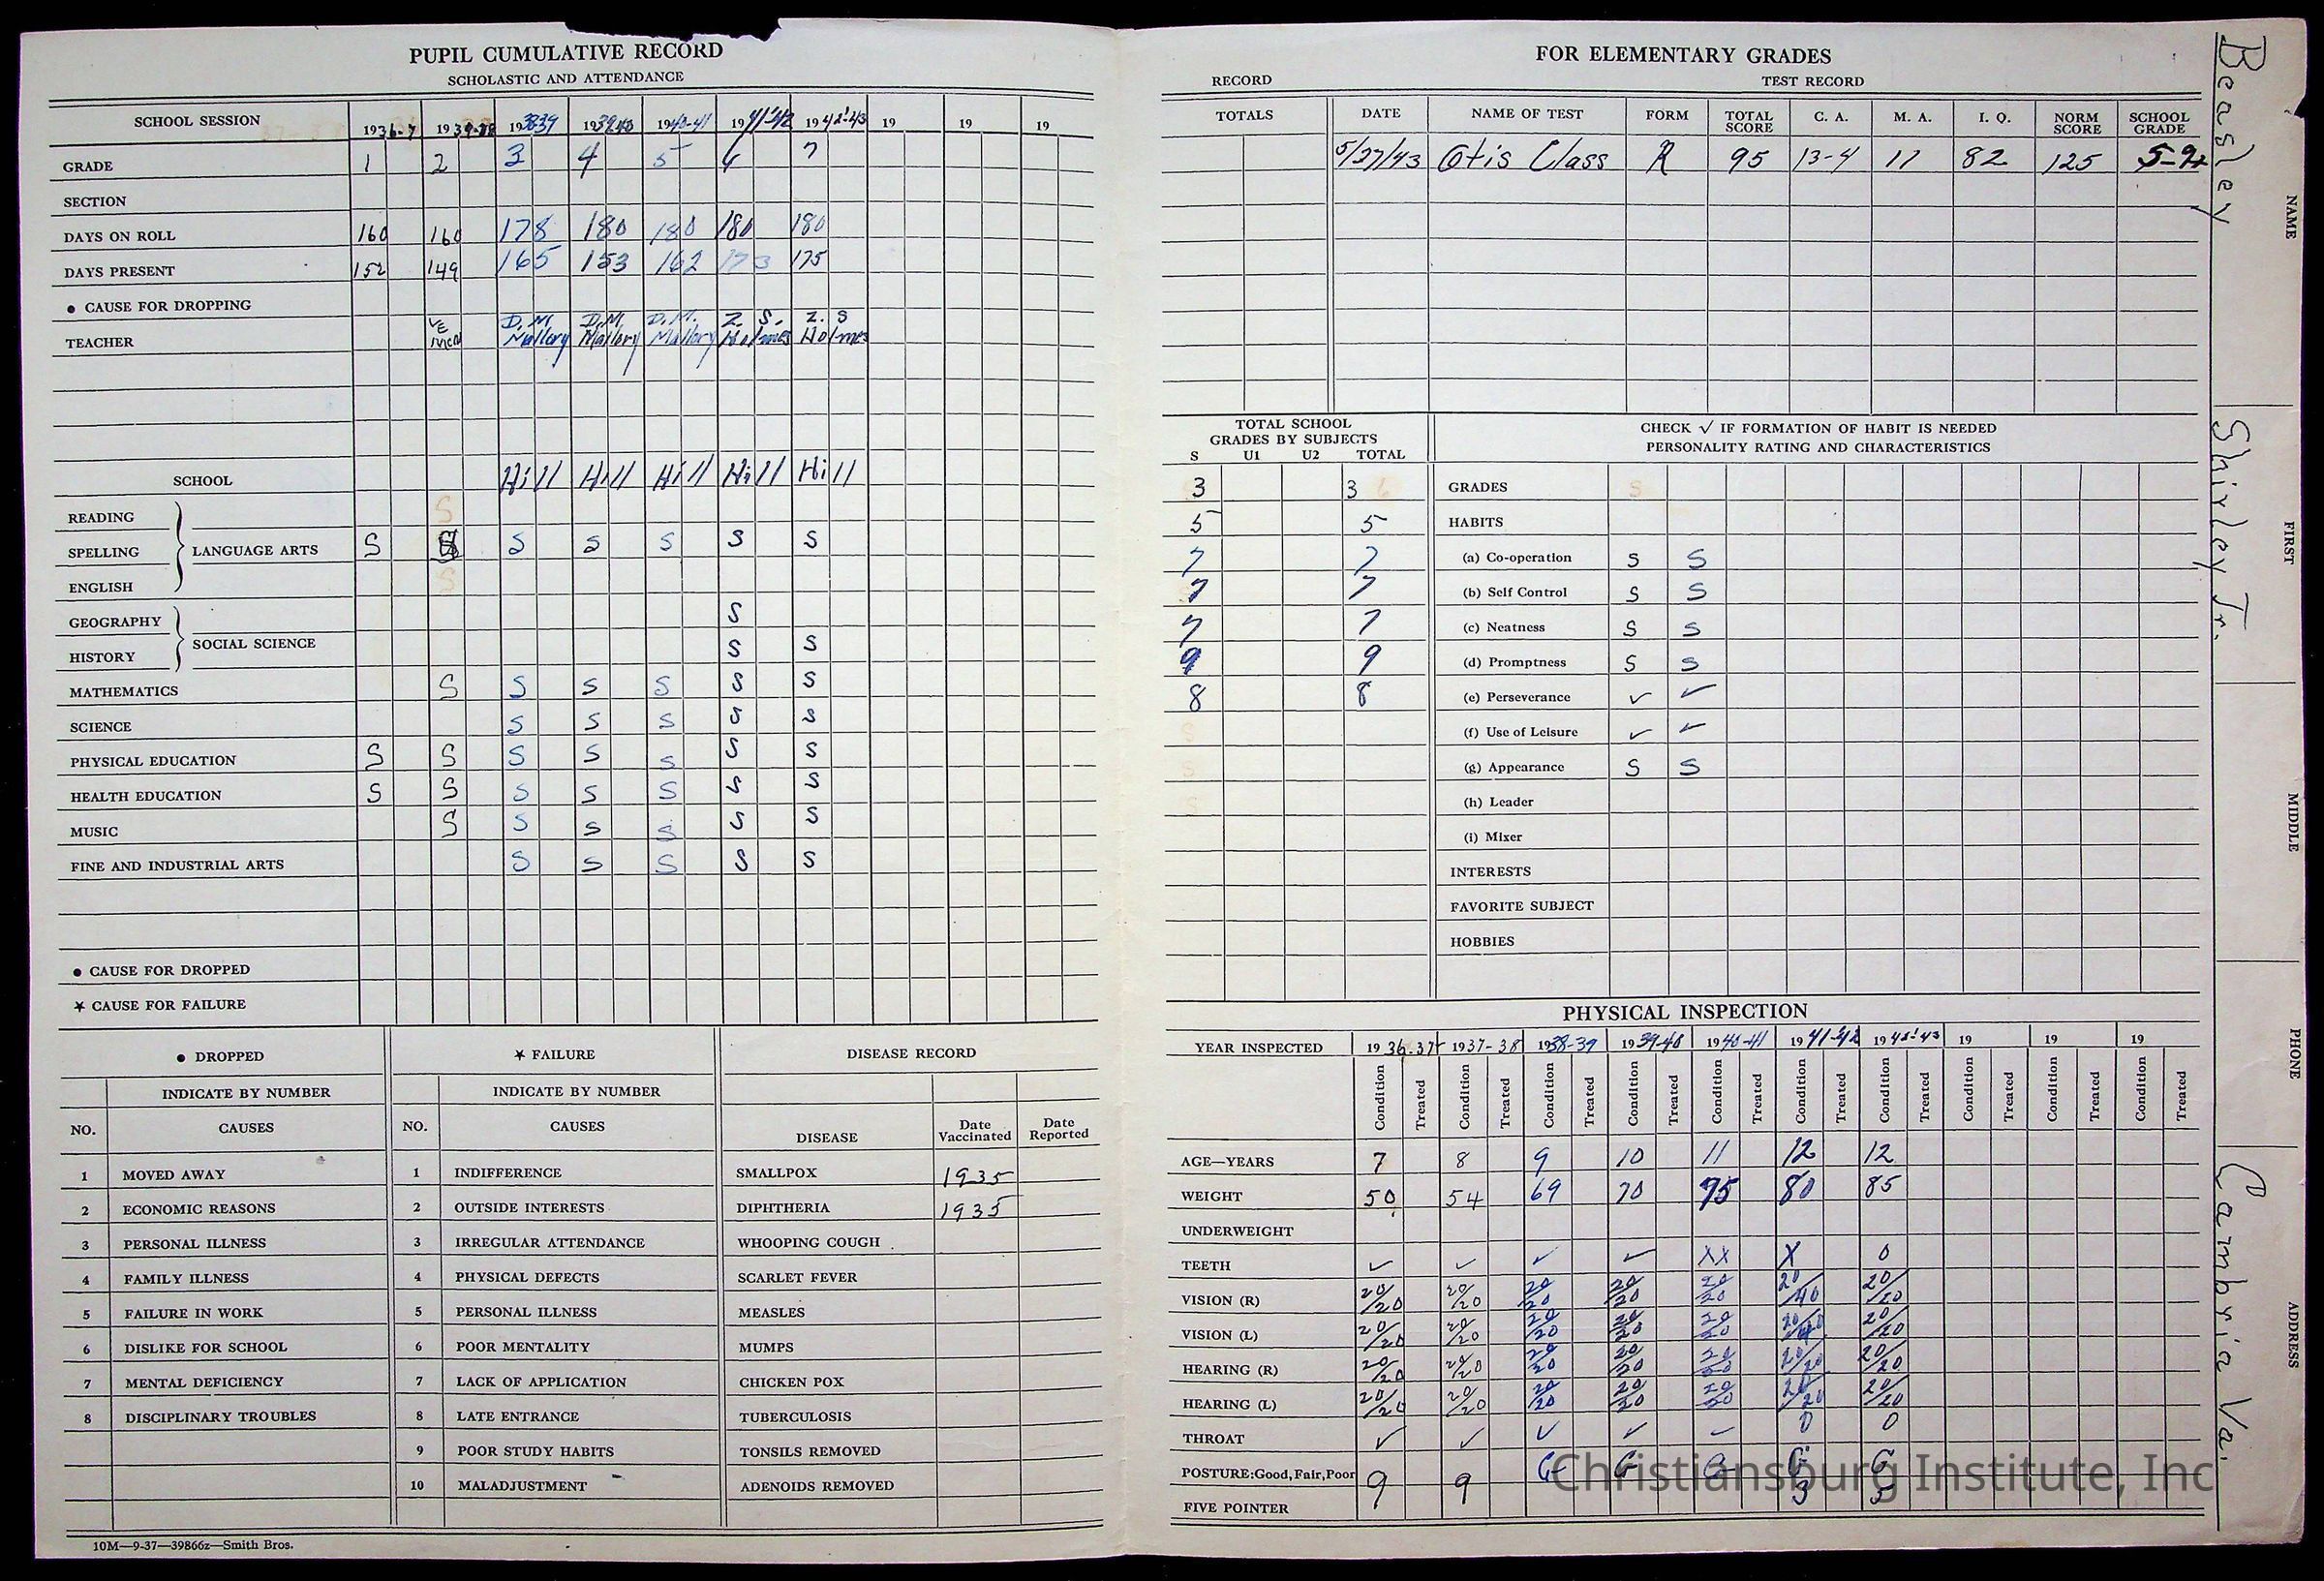 PUPIL CUMULATIVE RECORD
SCHOLASTIC AND ATTENDANCE
SCHOOL SESSION 1936-7 19 1938 39 1939 40 1940-41 1941-'42 1942'-43 19 19 19
GRADE 1 2 3 4 5 6 7
SECTION
DAYS ON ROLL 160 160 178 180 180 180 180
DAYS PRESENT 152 149 165 153 162 173 175
● CAUSE FOR DROPPING
D. M. D. M. D. M. Z. S. Z. S
TEACHER Mallory Mallory Mallory Holmes Holmes
SCHOOL Hill Hill Hill Hill Hill
READING S
SPELLING LANGUAGE ARTS S S S S S S
ENGLISH S
GEOGRAPHY S
SOCIAL SCIENCE
HISTORY S S
MATHEMATICS S S S S S S
SCIENCE S S S S S
PHYSICAL EDUCATION S S S S S S S
HEALTH EDUCATION S S S S S S S
MUSIC S S S S S S
FINE AND INDUSTRIAL ARTS S S S S S
● CAUSE FOR DROPPED
★ CAUSE FOR FAILURE
● DROPPED
INDICATE BY NUMBER
NO. CAUSES
1 MOVED AWAY
2 ECONOMIC REASONS
3 PERSONAL ILLNESS
4 FAMILY ILLNESS
5 FAILURE IN WORK
6 DISLIKE FOR SCHOOL
7 MENTAL DEFICIENCY
8 DISCIPLINARY TROUBLES
★ FAILURE
INDICATE BY NUMBER
NO. CAUSES
1 INDIFFERENCE
2 OUTSIDE INTERESTS
3 IRREGULAR ATTENDANCE
4 PHYSICAL DEFECTS
5 PERSONAL ILLNESS
6 POOR MENTALITY
7 LACK OF APPLICATION
8 LATE ENTRANCE
9 POOR STUDY HABITS
10 MALADJUSTMENT
DISEASE RECORD
DISEASE Date Vaccinated Date Reported
SMALLPOX 1935
DIPHTHERIA 1935
WHOOPING COUGH
SCARLET FEVER
MEASLES
MUMPS
CHICKEN POX
TUBERCULOSIS
TONSILS REMOVED
ADENOIDS REMOVED
10M—9-37—39866z—Smith Bros.
FOR ELEMENTARY GRADES
RECORD TEST RECORD
TOTALS DATE NAME OF TEST FORM TOTAL SCORE C. A. M. A. I. Q. NORM SCORE SCHOOL GRADE
5/27/43 Otis Class R 95 13-4 11 82 125
TOTAL SCHOOL
GRADES BY SUBJECTS
S U1 U2 TOTAL
3 3
5 5
7 7
7 7
7 7
9 9
8 8
CHECK ✓ IF FORMATION OF HABIT IS NEEDED
PERSONALITY RATING AND CHARACTERISTICS
GRADES S
HABITS
(a) Co-operation S S
(b) Self Control S S
(c) Neatness S S
(d) Promptness S S
(e) Perseverance ✓ ✓
(f) Use of Leisure ✓ ✓
(g) Appearance S S
(h) Leader
(i) Mixer
INTERESTS
FAVORITE SUBJECT
HOBBIES
PHYSICAL INSPECTION
YEAR INSPECTED 1936-37 1937-38 1938-39 1939-40 1940-41 1941-42 1942'-43 19 19 19
Condition Treated Condition Treated Condition Treated Condition Treated Condition Treated Condition Treated Condition Treated Condition Treated Condition Treated Condition Treated
AGE—YEARS 7 8 9 10 11 12 12
WEIGHT 50 54 69 70 75 80 85
UNDERWEIGHT
TEETH ✓ ✓ ✓ ✓ XX X 0
VISION (R) 20/20 20/20 20/20 20/20 20/20 20/40 20/20
VISION (L) 20/20 20/20 20/20 20/20 20/20 20/40 20/20
HEARING (R) 20/20 20/20 20/20 20/20 20/20 20/20 20/20
HEARING (L) 20/20 20/20 20/20 20/20 20/20 20/20 20/20
THROAT ✓ ✓ ✓ ✓ ✓ 0 0
POSTURE: Good, Fair, Poor g g G G G G G
FIVE POINTER 3 5
Christiansburg Institute, Inc
NAME Beasley
FIRST Shirley Jr.
MIDDLE
PHONE
ADDRESS Cambria Va.